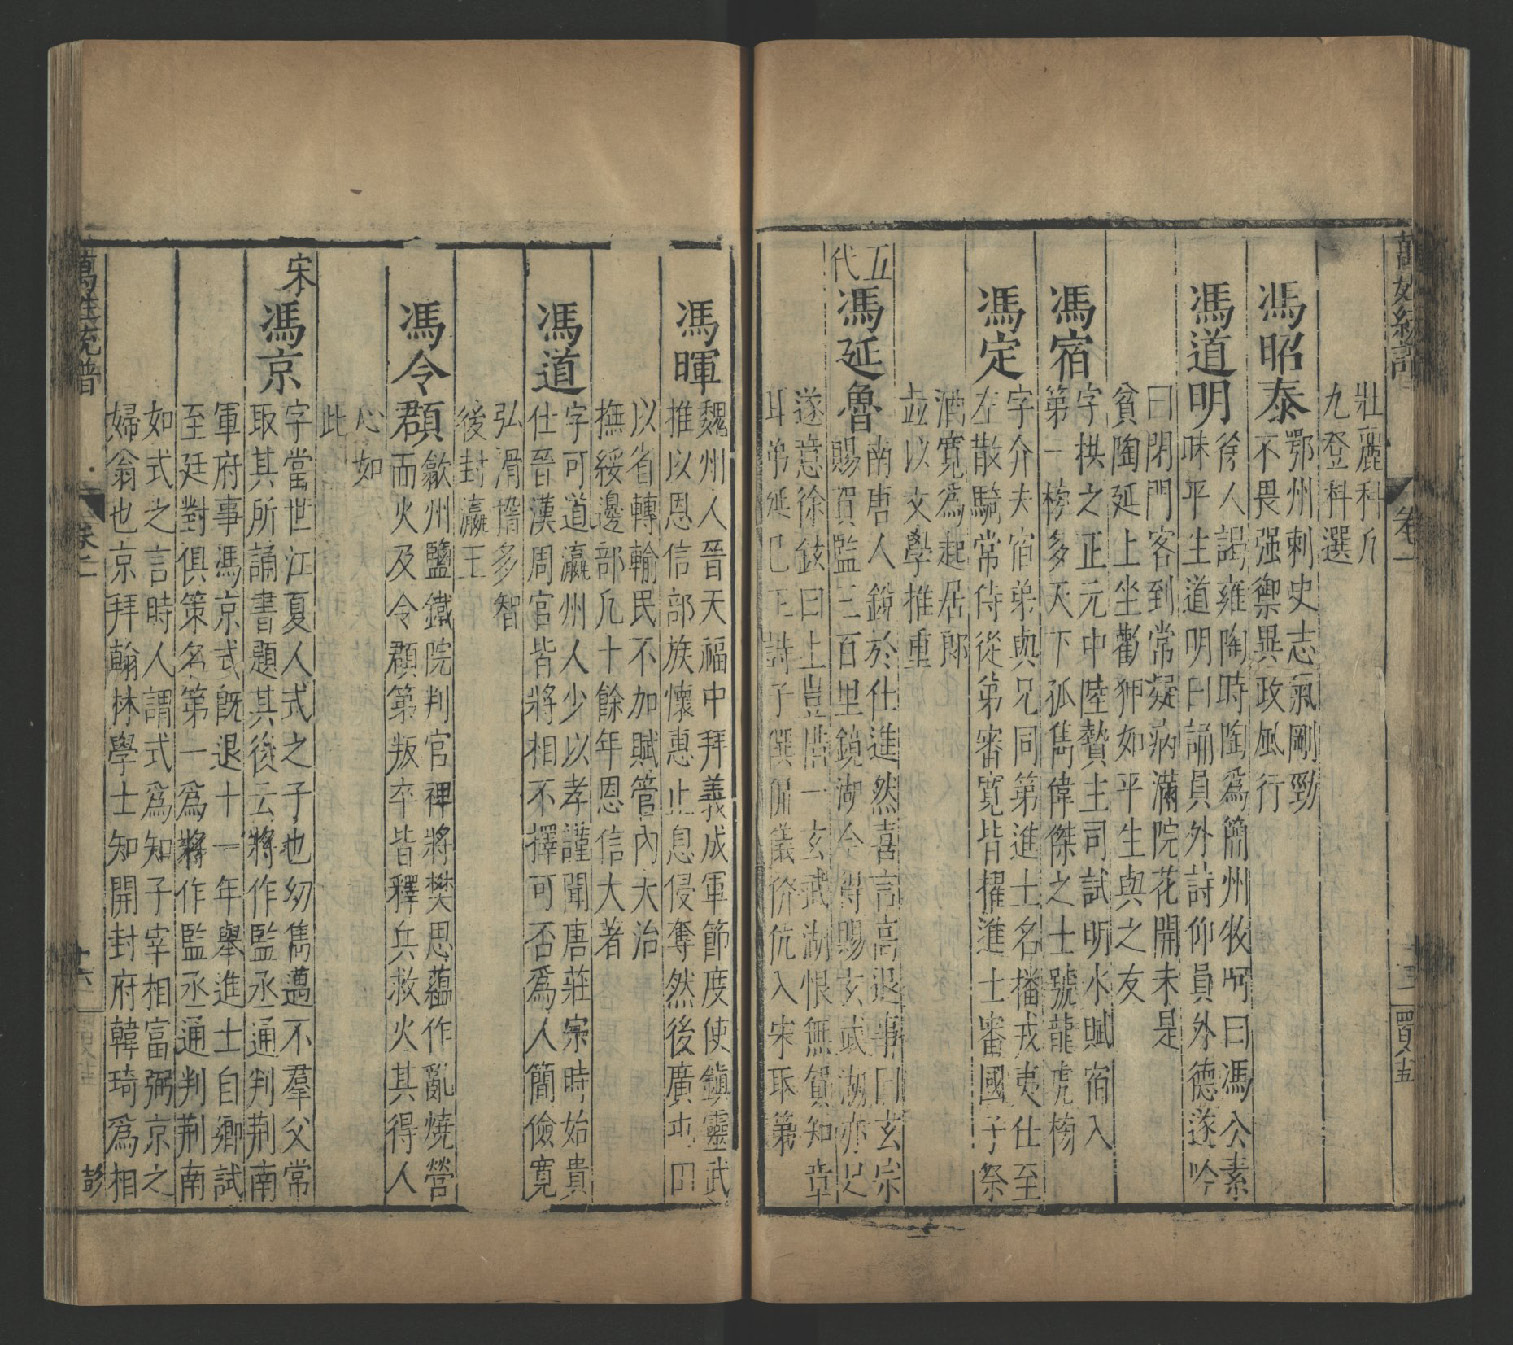 壯麗科凡
九登科選
馮昭泰
鄂州刺史志氣剛勁
不畏强禦異政風行
馮道明
徐人謁雍陶時陶爲簡州牧呵曰馮公素
昧平生道明曰誦員外詩仰員外德遂吟
曰閉門客到常疑病滿院花開未是
貧陶延上坐勸狎如平生與之友
馮宿
字拱之正元中陸贄主司試明水賦宿入
第一榜多天下孤雋偉傑之士號龍虎榜
馮定
字介夫宿弟與兄同第進士名播戎夷仕至
左散騎常侍從弟審寬皆擢進士審國子祭
酒寬爲起居郎
竝以文學推重
五代
馮延魯
南唐人鋭於仕進然喜言高退事曰玄宗
賜賀監三百里鏡湖今得賜玄武湖亦足
遂意徐鉉曰上豈惜一玄武湖恨無賀知章
耳弟延巳正詩子僎侃儀价伉入宋取第
馮暉
魏州人晉天福中拜義成軍節度使鎮靈武
推以恩信部族懷惠止息侵奪然後廣屯田
以省轉輸民不加賦管內大治
撫綏邊部凡十餘年恩信大著
馮道
字可道瀛州人少以孝謹聞唐莊宗時始貴
仕晉漢周官皆將相不擇可否爲人簡儉寬
弘滑㨊多智
後封瀛王
馮令頵
歙州鹽鐵院判官裨將樊思蘊作亂燒營
而火及令頵第叛卒皆釋兵救火其得人
心如
此
宋
馮京
字當世江夏人式之子也幼雋邁不羣父常
取其所誦書題其後云將作監丞通判荆南
軍府事馮京式旣退十一年舉進士自鄉試
至廷對俱策名第一爲將作監丞通判荆南
如式之言時人謂式爲知子宰相富弼京之
婦翁也京拜翰林學士知開封府韓琦爲相
萬姓統譜
卷之一
十六
彭